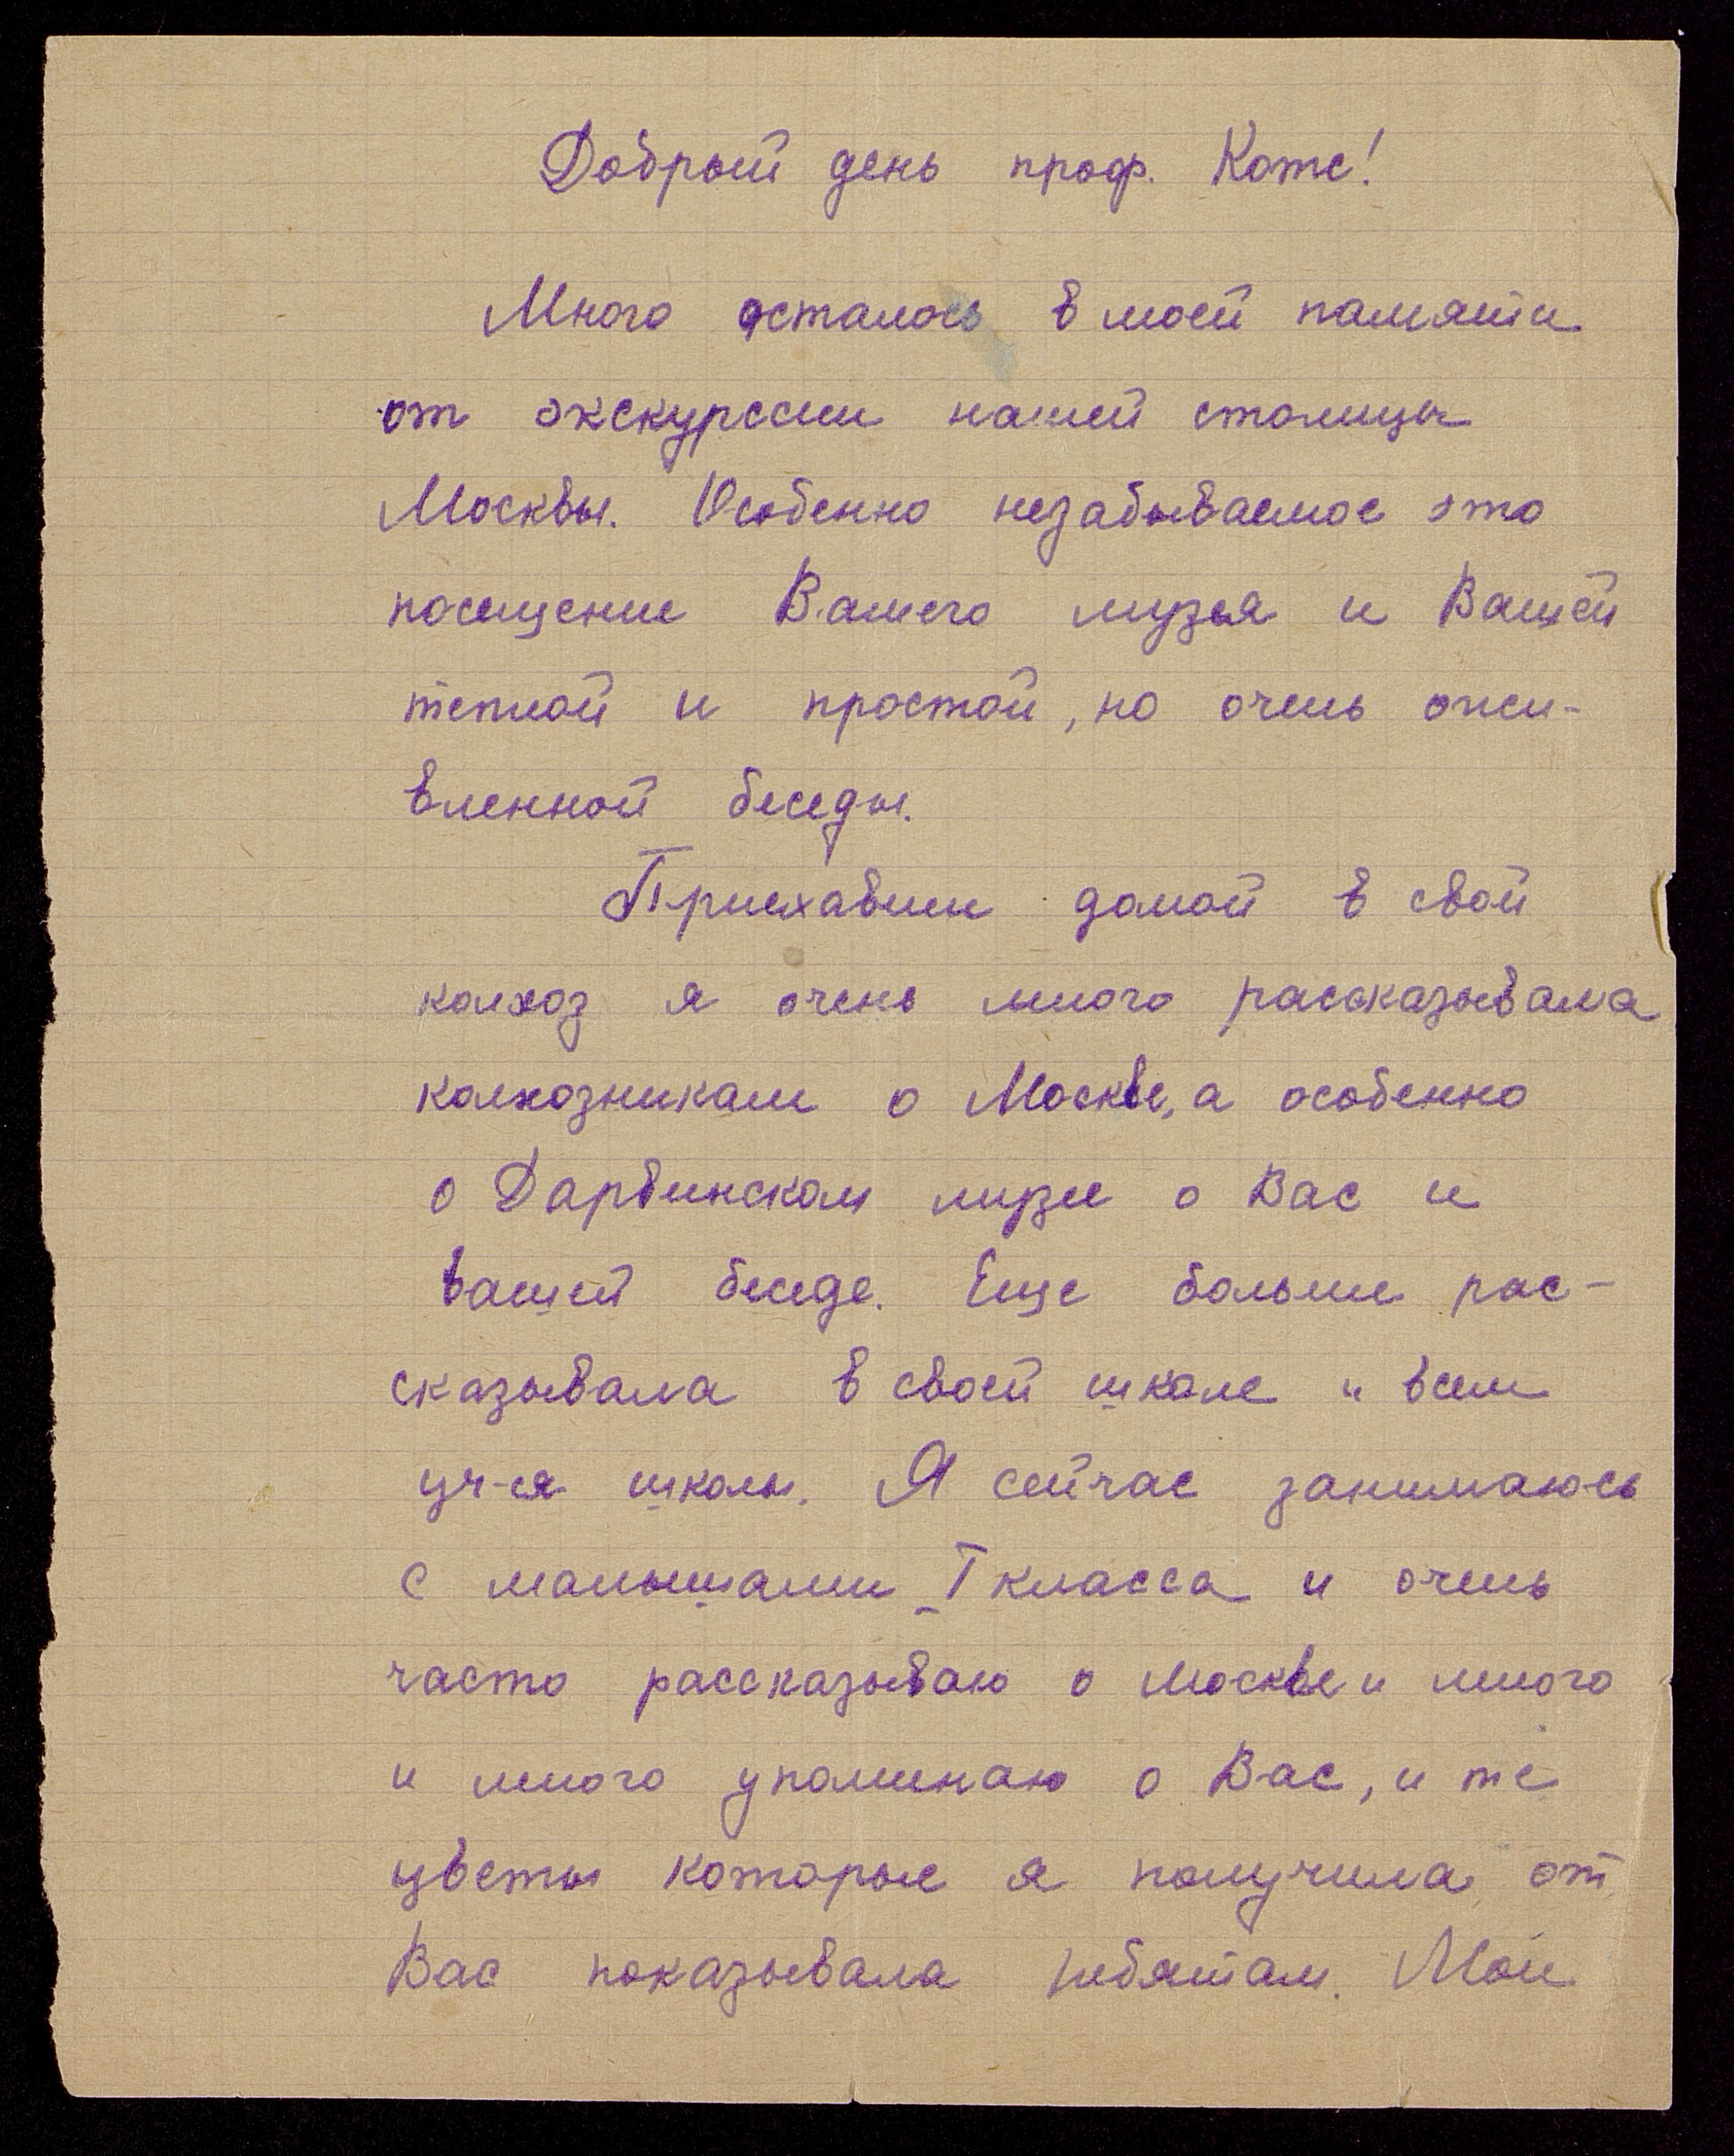 Добрый день проф. Котс!
Много осталось в моей памяти
от экскурсии нашей столицы
Москвы. Особенно незабываемое это
посещение Вашего музея и Вашей
теплой и простой, но очень ожи-
вленной беседы.
Приехавши домой в свой
колхоз я очень много рассказывала
колхозникам о Москве, а особенно
о Дарвинском музее о Вас и
вашей беседе. Еще больше рас-
сказывала в своей школе и всем
уч-ся школы. Я сейчас занимаюсь
с малышами I класса и очень
часто рассказываю о Москве и много
и много упоминаю о Вас, и те
цветы которые я получила от
Вас показывала ребятам. Мои